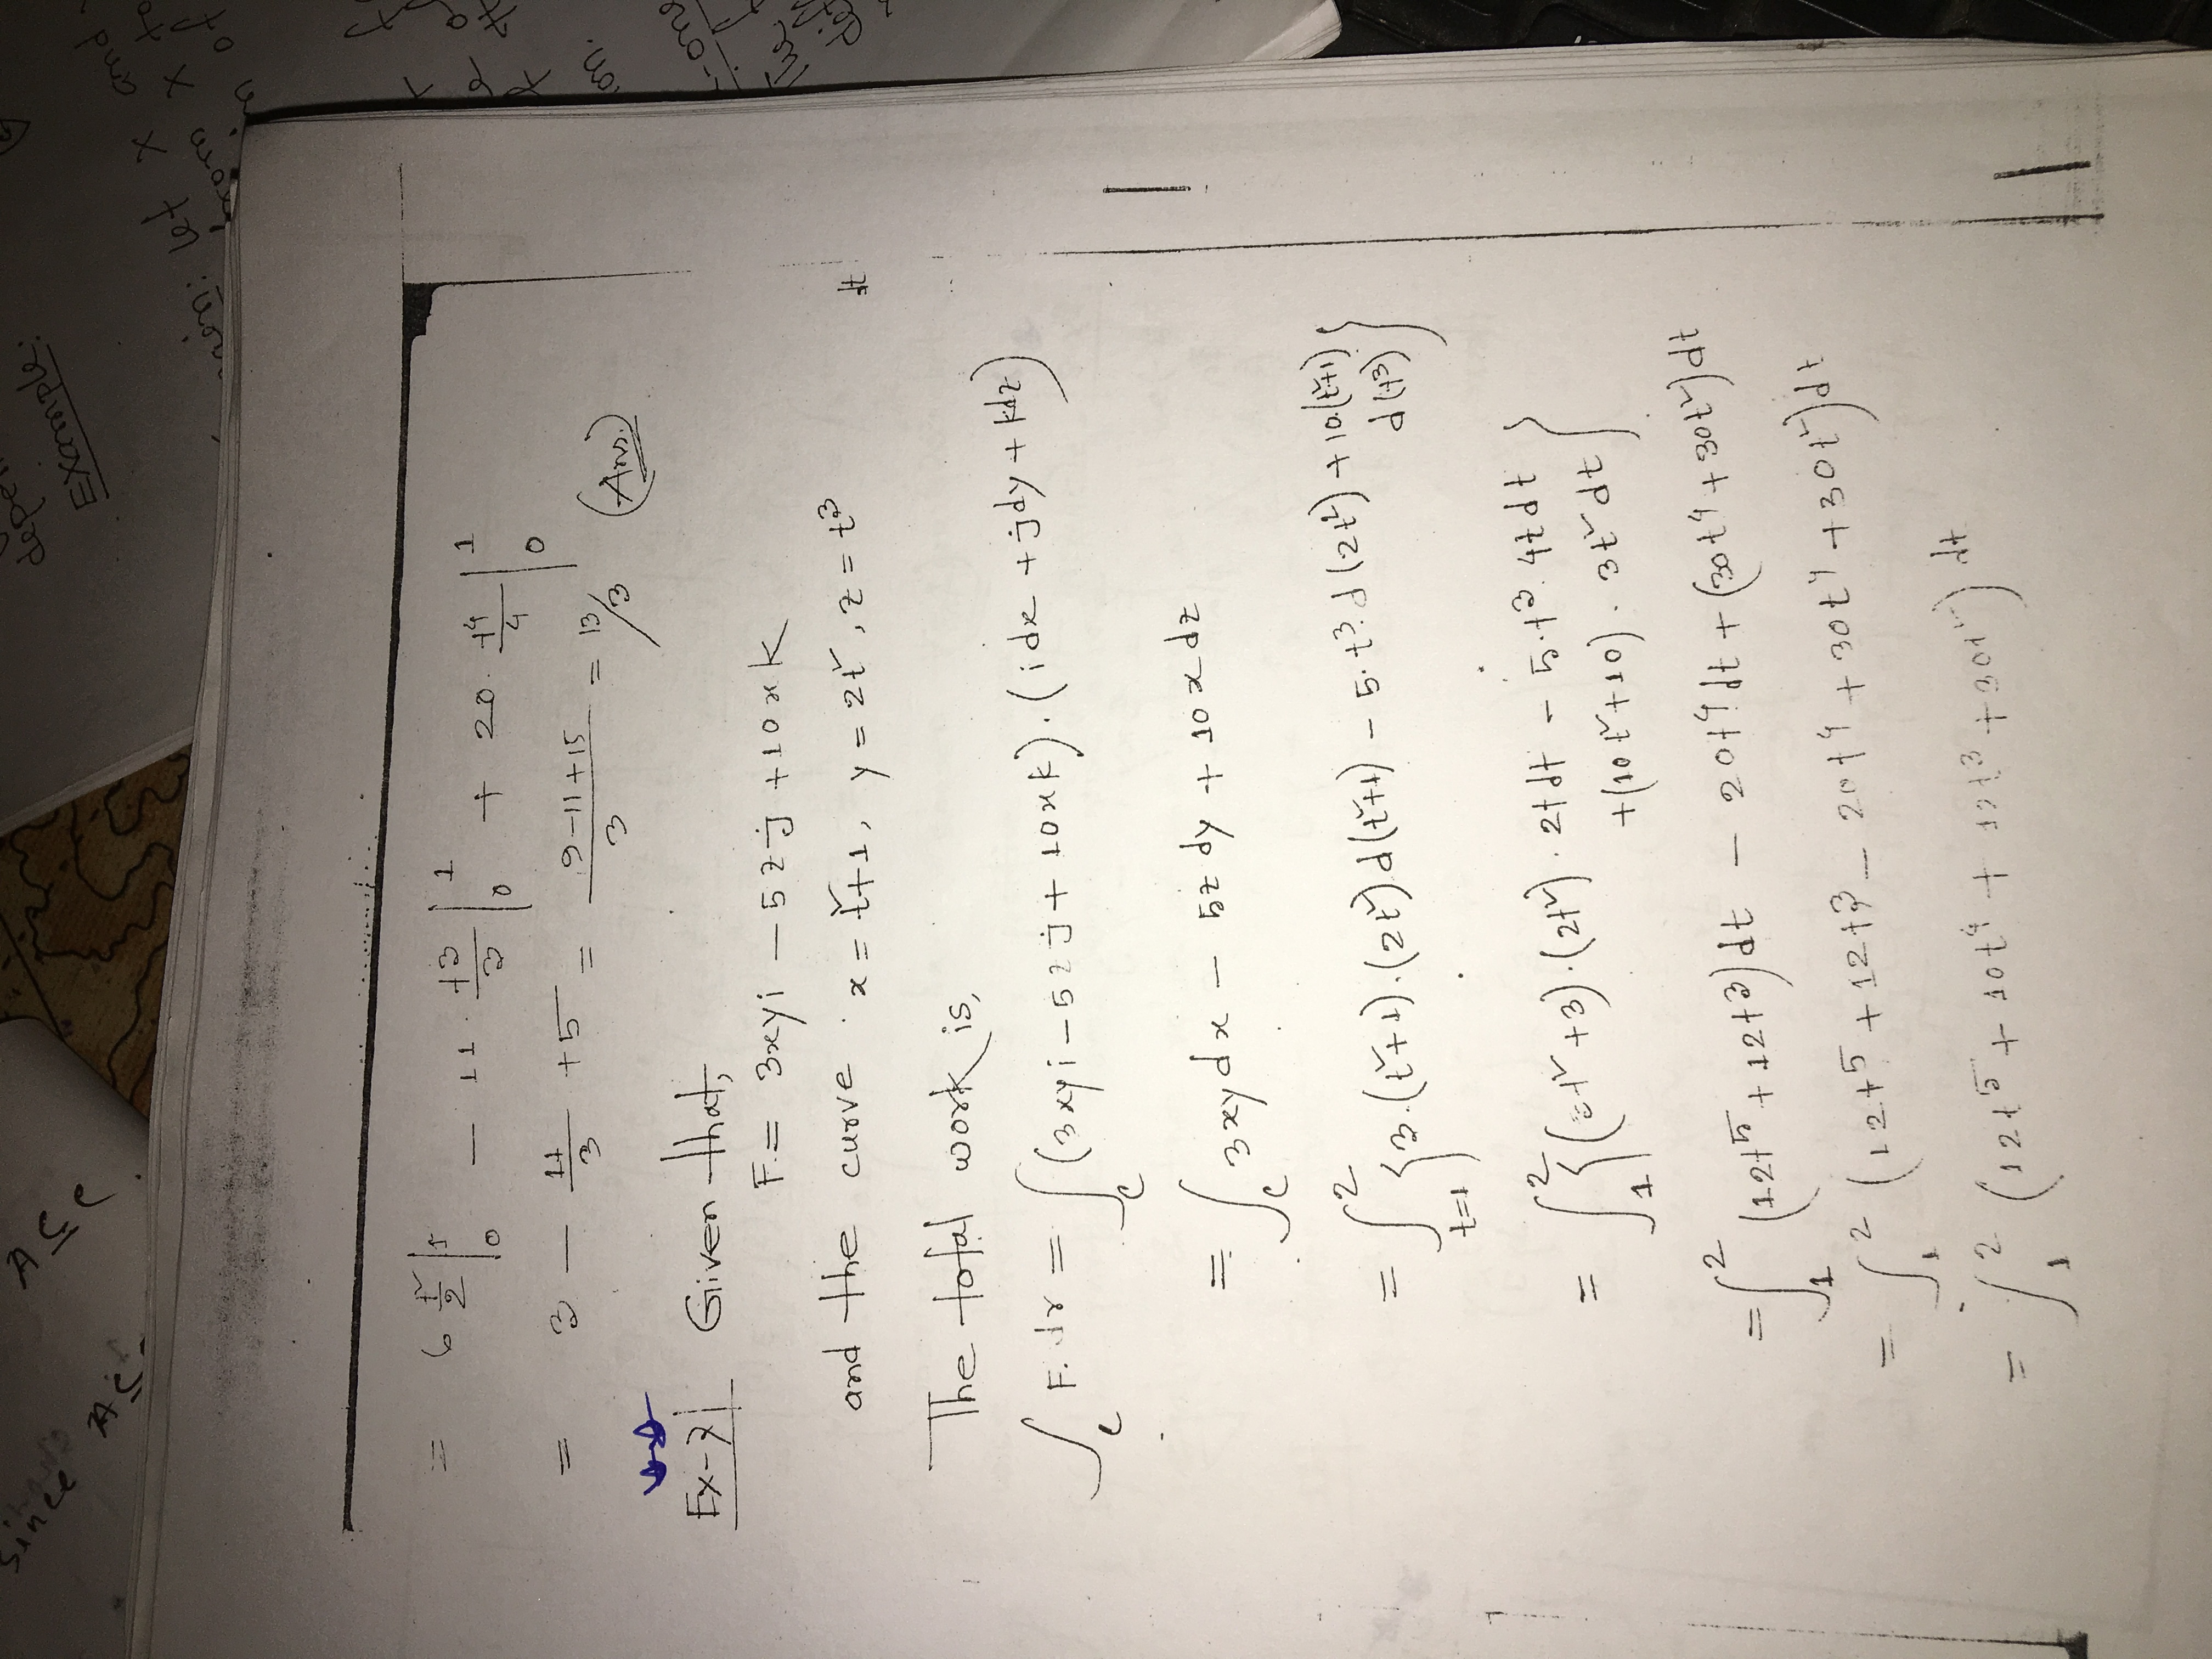 since
A ⊆
A ⊆ C
depen
Example:
let X and
= 6 t²/2 |₀¹ − 11. t3/3 |₀¹ + 20. t4/4 |₀¹
= 3 − 11/3 + 5 = 9−11+15/3 = 13/3 (Ans.)
Ex-7| Given that,
F. = 3xyi − 5zj + 10xk
and the curve x = t²+1, y = 2t², z = t³
dt
The total work is,
∫c F. dr = ∫c (3xyi − 5zj + 10xk). (idx + jdy + kdz)
= ∫c 3xydx − 5z dy + 10x dz
= ∫_{t=1}^{2} {3.(t²+1).(2t²) d(t²+1) − 5.t³.d(2t²) + 10.(t²+1)
d(t³)}
= ∫₁² {(3t²+3).(2t²). 2t dt − 5.t³. 4t dt
+(10t²+10). 3t² dt}
= ∫₁² (12t⁵+12t³)dt − 20t⁴dt + (30t⁴+30t²)dt
= ∫₁² (12t⁵+12t³ − 20t⁴ + 30t⁴ + 30t²)dt
= ∫₁² (12t⁵ + 10t⁴ + 12t³ + 30t²) dt